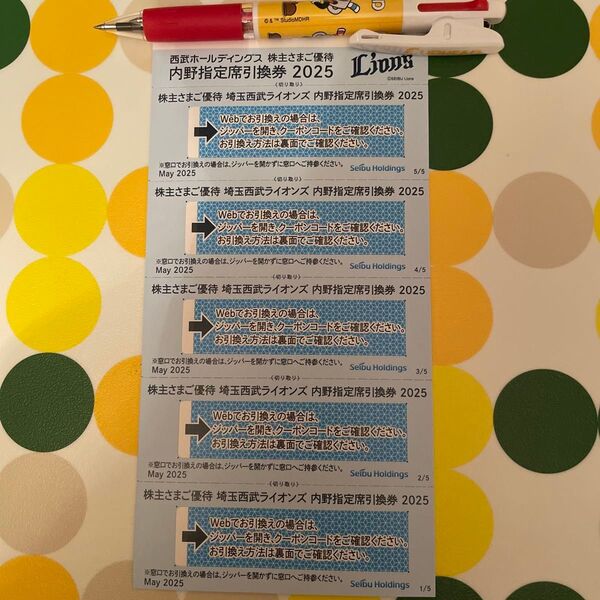 © & ™ StudioMDHR
西武ホールディングス 株主さまご優待
内野指定席引換券 2025
Lions
©SEIBU Lions
〈切り取り〉
株主さまご優待 埼玉西武ライオンズ 内野指定席引換券 2025
Webでお引換えの場合は、
ジッパーを開き、クーポンコードをご確認ください。
お引換え方法は裏面でご確認ください。
※窓口でお引換えの場合は、ジッパーを開かずに窓口へご持参ください。
May 2025
Seibu Holdings
5/5
〈切り取り〉
株主さまご優待 埼玉西武ライオンズ 内野指定席引換券 2025
Webでお引換えの場合は、
ジッパーを開き、クーポンコードをご確認ください。
お引換え方法は裏面でご確認ください。
※窓口でお引換えの場合は、ジッパーを開かずに窓口へご持参ください。
May 2025
Seibu Holdings
4/5
〈切り取り〉
株主さまご優待 埼玉西武ライオンズ 内野指定席引換券 2025
Webでお引換えの場合は、
ジッパーを開き、クーポンコードをご確認ください。
お引換え方法は裏面でご確認ください。
※窓口でお引換えの場合は、ジッパーを開かずに窓口へご持参ください。
May 2025
Seibu Holdings
3/5
〈切り取り〉
株主さまご優待 埼玉西武ライオンズ 内野指定席引換券 2025
Webでお引換えの場合は、
ジッパーを開き、クーポンコードをご確認ください。
お引換え方法は裏面でご確認ください。
※窓口でお引換えの場合は、ジッパーを開かずに窓口へご持参ください。
May 2025
Seibu Holdings
2/5
〈切り取り〉
株主さまご優待 埼玉西武ライオンズ 内野指定席引換券 2025
Webでお引換えの場合は、
ジッパーを開き、クーポンコードをご確認ください。
お引換え方法は裏面でご確認ください。
※窓口でお引換えの場合は、ジッパーを開かずに窓口へご持参ください。
May 2025
Seibu Holdings
1/5